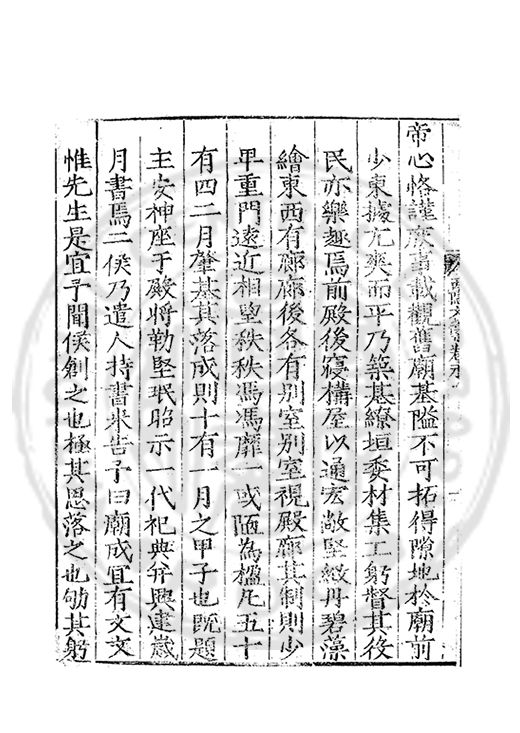 帝心恪謹厥嗇載觀舊廟基隘不可拓得隙地於廟前
少東據亢爽而平乃築基繚垣委材集工躬督其役
民亦樂趣焉前殿後寢構屋以通宏敞堅緻丹碧藻
繪東西有廊廊後各有别室别室視殿廊其制則少
卑重門遠近相望秩秩馮馮靡一或陋為楹凡五十
有四二月肇基其落成則十有一月之甲子也既題
主安神座于殿將勒堅珉昭示一代祀典并興建歲
月書焉二侯乃遣人持書来告予曰廟成宜有文文
惟先生是宜予聞侯創之也極其思落之也劬其躬